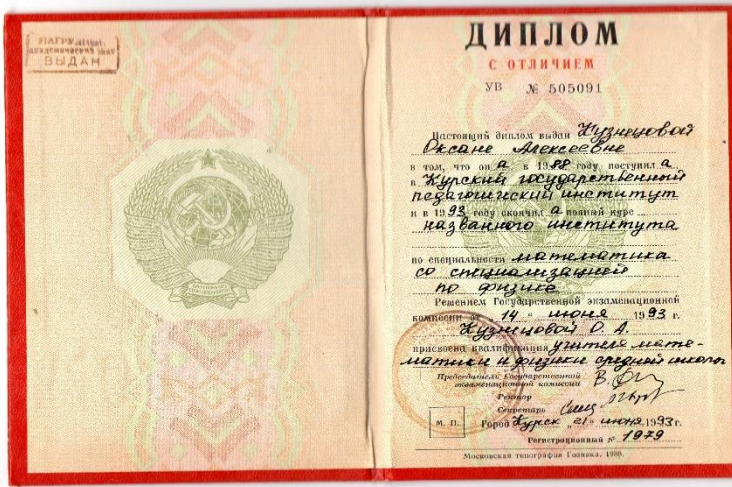 НАГРУДНЫЙ
академический знак
ВЫДАН
ДИПЛОМ
С ОТЛИЧИЕМ
УВ № 505091
Настоящий диплом выдан Кузнецовой
Оксане Алексеевне
в том, что она в 1988 году поступила
в Курский государственный
педагогический институт
и в 1993 году окончила полный курс
названного института
по специальности математика
со специализацией
по физике
Решением Государственной экзаменационной
комиссии от „14“ июня 1993 г.
Кузнецовой О. А.
присвоена квалификация учителя мате-
матики и физики средней школы
Председатель Государственной
экзаменационной комиссии
Ректор
Секретарь
М. П. Город Курск „21“ июня 1993 г.
Регистрационный № 1979
Московская типография Гознака. 1990.